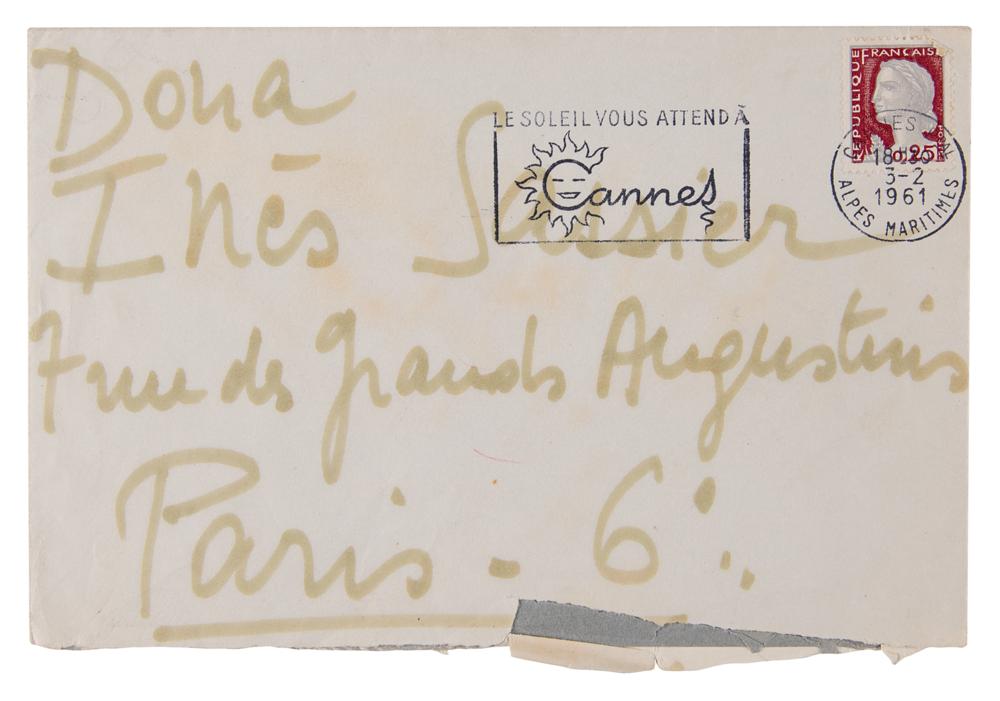 RÉPUBLIQUE FRANÇAISE
0,25
LE SOLEIL VOUS ATTEND À
Cannes
18H30
3-2
1961
ALPES MARITIMES
Dona
Inès Sassier
7 rue des grands Augustins
Paris - 6e..